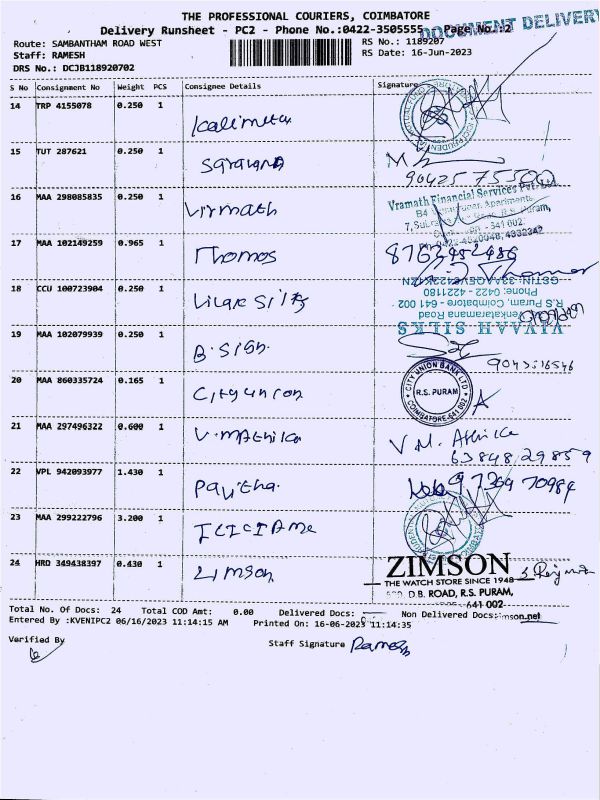 THE PROFESSIONAL COURIERS, COIMBATORE
Delivery Runsheet - PC2 - Phone No.:0422-3505555 Page No.:2
DOCUMENT DELIVERY
Route: SAMBANTHAM ROAD WEST
Staff: RAMESH
DRS No.: DCJB118920702
RS No.: 1189207
RS Date: 16-Jun-2023
S No Consignment No Weight PCS Consignee Details Signature
14 TRP 4155078 0.250 1
15 TUT 287621 0.250 1 Saravana
90425 75500
16 MAA 298085835 0.250 1 Virmath
Vramath Financial Services Pvt. Ltd.
17 MAA 102149259 0.965 1 Thomas
Thomas
18 CCU 100723904 0.250 1
GSTIN:
Phone: 0422 - 4221180
R.S. Puram, Coimbatore - 641 002
Venkataramana Road
VIVAAH SILKS
19 MAA 102079939 0.250 1 B. Sign.
20 MAA 860335724 0.165 1 City union
CITY UNION BANK LTD
R.S. PURAM
COIMBATORE-641 002
21 MAA 297496322 0.600 1 V. mathika
63848 29859
22 VPL 942093977 1.430 1 Pavitha.
97369 70984
23 MAA 299222796 3.200 1
24 HRO 349438397 0.430 1 Zimson
ZIMSON
THE WATCH STORE SINCE 1948
D.B. ROAD, R.S. PURAM,
641 002
Total No. Of Docs: 24 Total COD Amt: 0.00 Delivered Docs: Non Delivered Docs:
Entered By :KVENIPC2 06/16/2023 11:14:15 AM Printed On: 16-06-2023 11:14:35
Verified By Staff Signature Ramesh